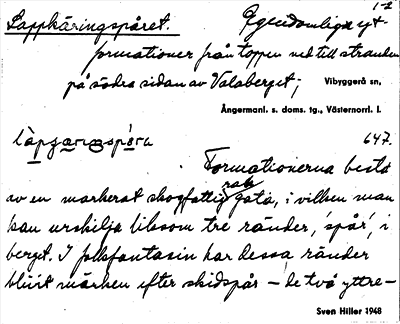 Lappkäringspåret. Egendomliga yt- 1-2
formationer från toppen ned till stranden
på södra sidan av Valaberget; Vibyggerå sn,
Ångermanl. s. doms. tg., Västernorrl. l.
647.
Formationerna bestå
av en markerat skogfattig rak gata, i vilken man
kan urskilja liksom tre ränder, 'spår', i
berget. I folkfantasin har dessa ränder
blivit märken efter skidspår – de två yttre –
Sven Hiller 1948